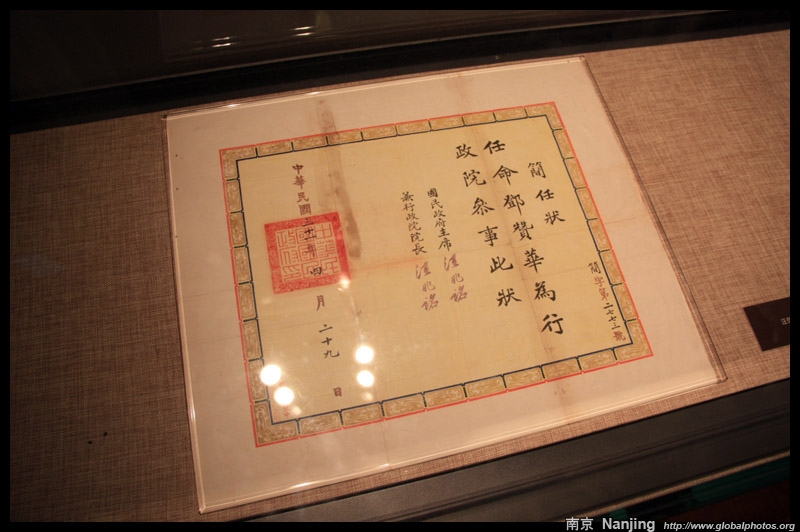 簡任狀
任命鄧贊華為行
政院參事此狀
國民政府主席 汪兆銘
兼行政院院長 汪兆銘
中華民國三十一年四月二十九日
簡字第二七七三號
南京 Nanjing http://www.globalphotos.org